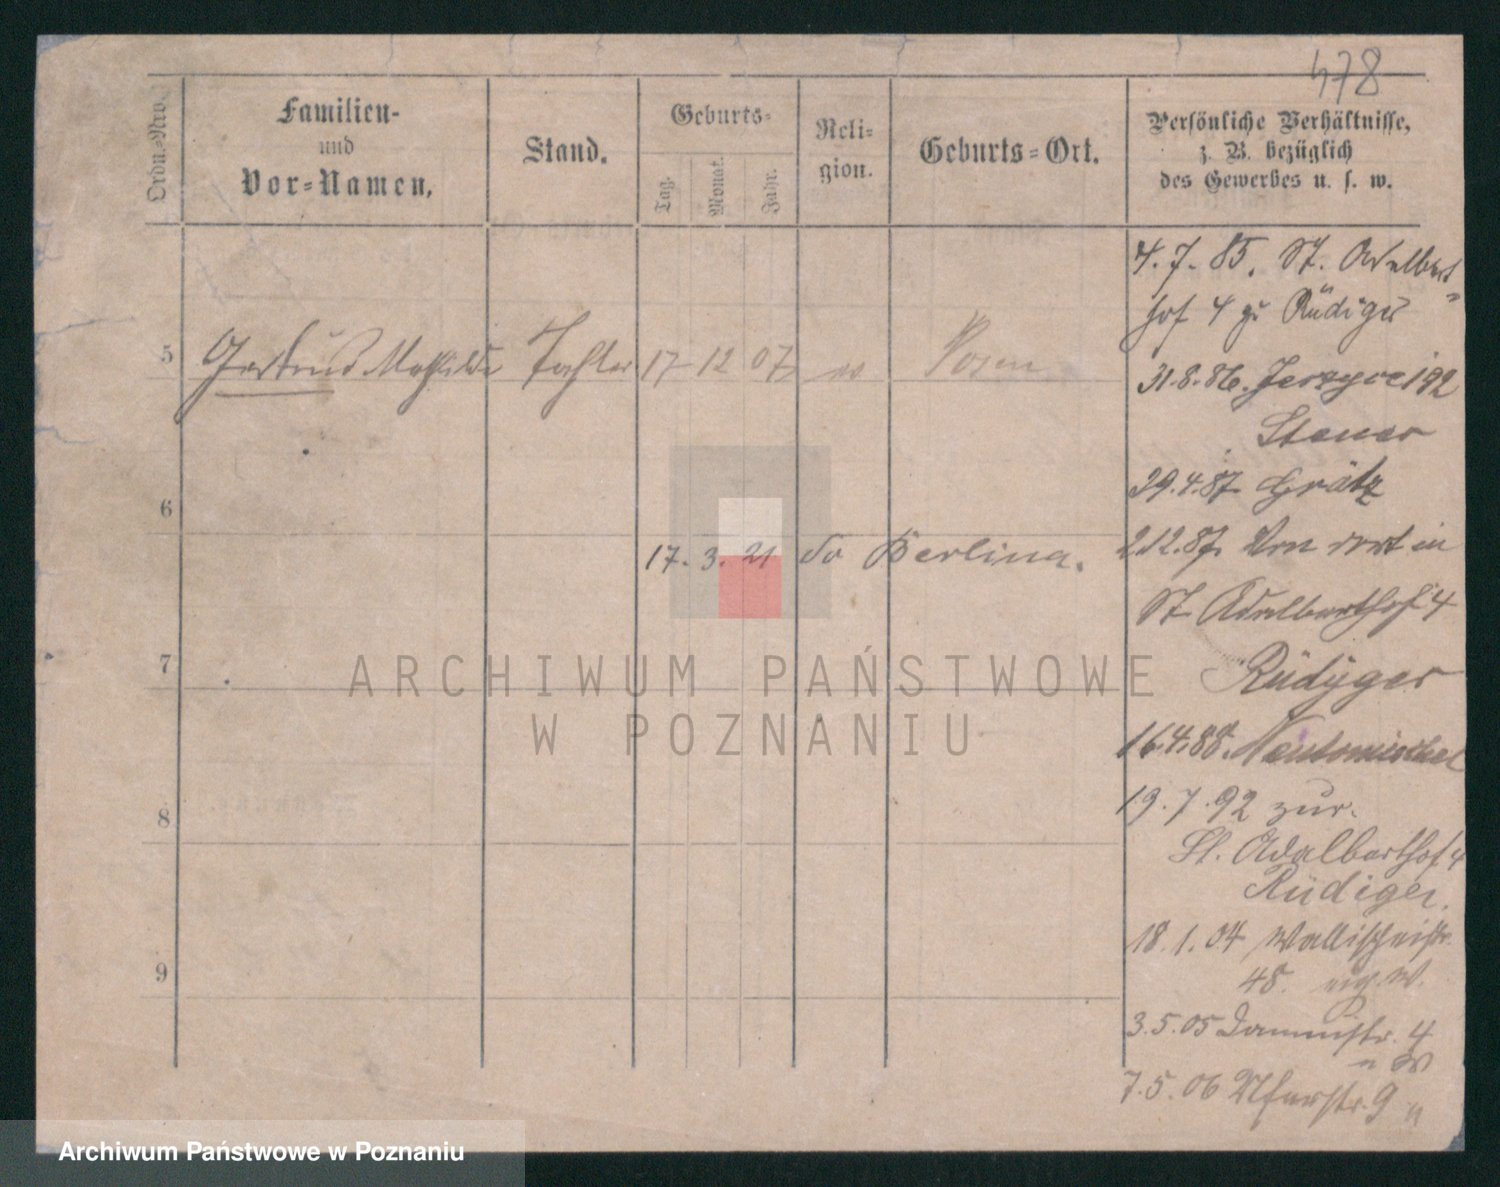 478
Ordn.-Nro.
Familien-
und
Vor-Namen.
Stand.
Geburts-
Tag.
Monat.
Jahr.
Reli-
gion.
Geburts-Ort.
Persönliche Verhältnisse,
z. B. bezüglich
des Gewerbes u. s. w.
4. 7. 85. St. Adalbert
hof 4 zu Rüdiger
5 Gertrud Mathilde Tochter 17 12 07 Posen
31.8.86. Jerzyce 192
29.4.87 Grätz
6
17. 3. 21 do Berlin
2.12.87. in
St Adalberthof 4
7
Rüdyger
ARCHIWUM PAŃSTWOWE
W POZNANIU
16.4.88. Neutomischel
19. 7. 92 zur.
8
St. Adalberthof 4
Rüdiger.
18. 1. 04 Wallischeistr.
48. W.
9
3.5.05 Dammstr. 4
W
7. 5. 06 Uferstr. 9
Archiwum Państwowe w Poznaniu